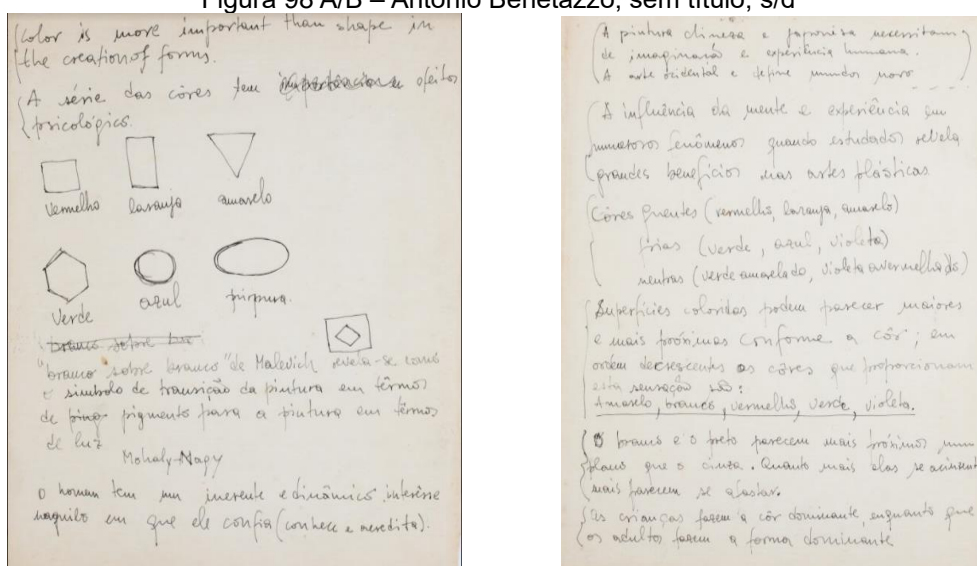 Figura 98 A/B – Antonio Benetazzo, sem título, s/d
Color is more important than shape in
the creation of forms.
A série das côres tem efeitos
psicológicos.
vermelho laranja amarelo
Verde azul púrpura.
branco sobre
"branco sobre branco" de Malevich revela-se como
o símbolo de transição da pintura em têrmos
de pigmento para a pintura em têrmos
de luz
Moholy-Nagy
O homem tem um inerente e dinâmico interêsse
naquilo em que ele confia (conhece e acredita).
A pintura chineza e japoneza necessitam
de imaginação e experiência humana.
A arte ocidental e define mundos novo
A influência da mente e experiência em
numerosos fenômenos quando estudados revela
grandes benefícios nas artes plásticas.
Côres quentes (vermelho, laranja, amarelo)
frias (verde, azul, violeta)
neutras (verde amarelado, violeta avermelhado)
Superfícies coloridas podem parecer maiores
e mais próximas conforme a côr; em
ordem decrescentes as côres que proporcionam
esta sensação são:
Amarelo, branco, vermelho, verde, violeta.
O branco e o preto parecem mais próximos num
plano que o cinza. Quanto mais elas se
mais parecem se afastar.
As crianças fazem a côr dominante, enquanto que
os adultos fazem a forma dominante